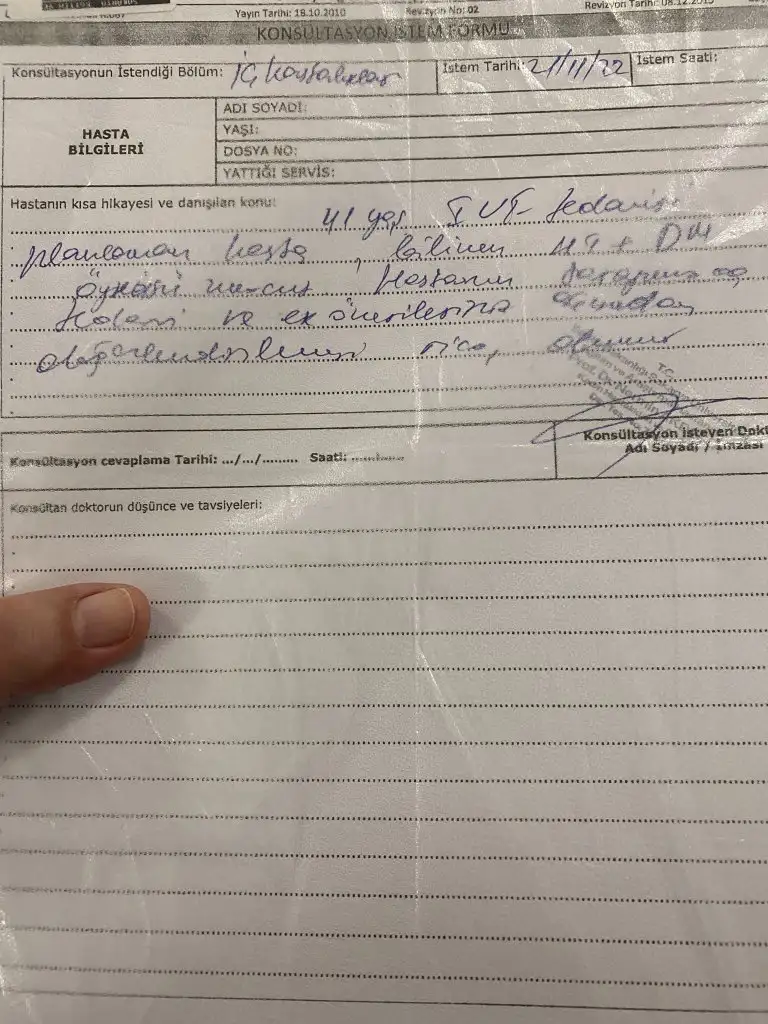 Yayın Tarihi: 18.10.2010 Revizyon No: 02 Revizyon Tarihi: 08.12.2015
KONSÜLTASYON İSTEM FORMU
Konsültasyonun İstendiği Bölüm: İç Hastalıkları İstem Tarihi: 21/11/22 İstem Saati:
HASTA BİLGİLERİ
ADI SOYADI:
YAŞI:
DOSYA NO:
YATTIĞI SERVİS:
Hastanın kısa hikayesi ve danışılan konu:
41 yaş IVF tedavisi
planlanan hasta, bilinen HT + DM
öyküsü mevcut, Hastanın tarafınızca
tedavi ve ek önerileriniz açısından
değerlendirilmesi rica olunur
T.C.
Konsültasyon cevaplama Tarihi: .../.../......... Saati: ............
Konsültasyon İsteyen Dokt
Adı Soyadı / İmzası
Konsültan doktorun düşünce ve tavsiyeleri: